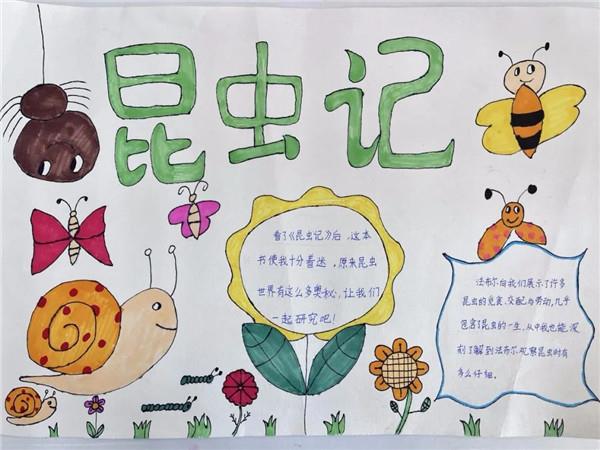 昆虫记
看了《昆虫记》后，这本
书使我十分着迷，原来昆虫
世界有这么多奥秘，让我们
一起研究吧！
法布尔向我们展示了许多
昆虫的觅食、交配与劳动，几乎
包含了昆虫的一生，从中我也能深
刻了解到法布尔观察昆虫时有
多么仔细。